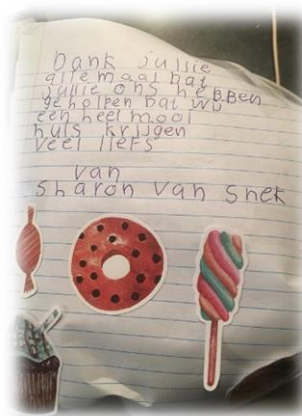 Dank jullie
allemaal bat
jullie ons hebben
geholpen bat wij
een heel mooi
huis krijgen
veel liefs
van
Sharon van Snek